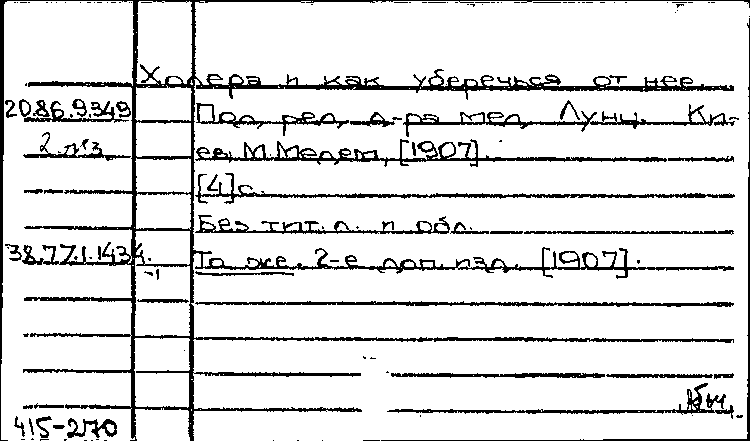 Холера и как уберечься от нее.
20.86.9.349 Под ред. д-ра мед. Лунц. Ки-
2 экз. ев, М.Мелем, [1907].
[4]с.
Без тит. л. и обл.
38.77.1.1434. То же. 2-е доп. изд. [1907].
-1
415-270